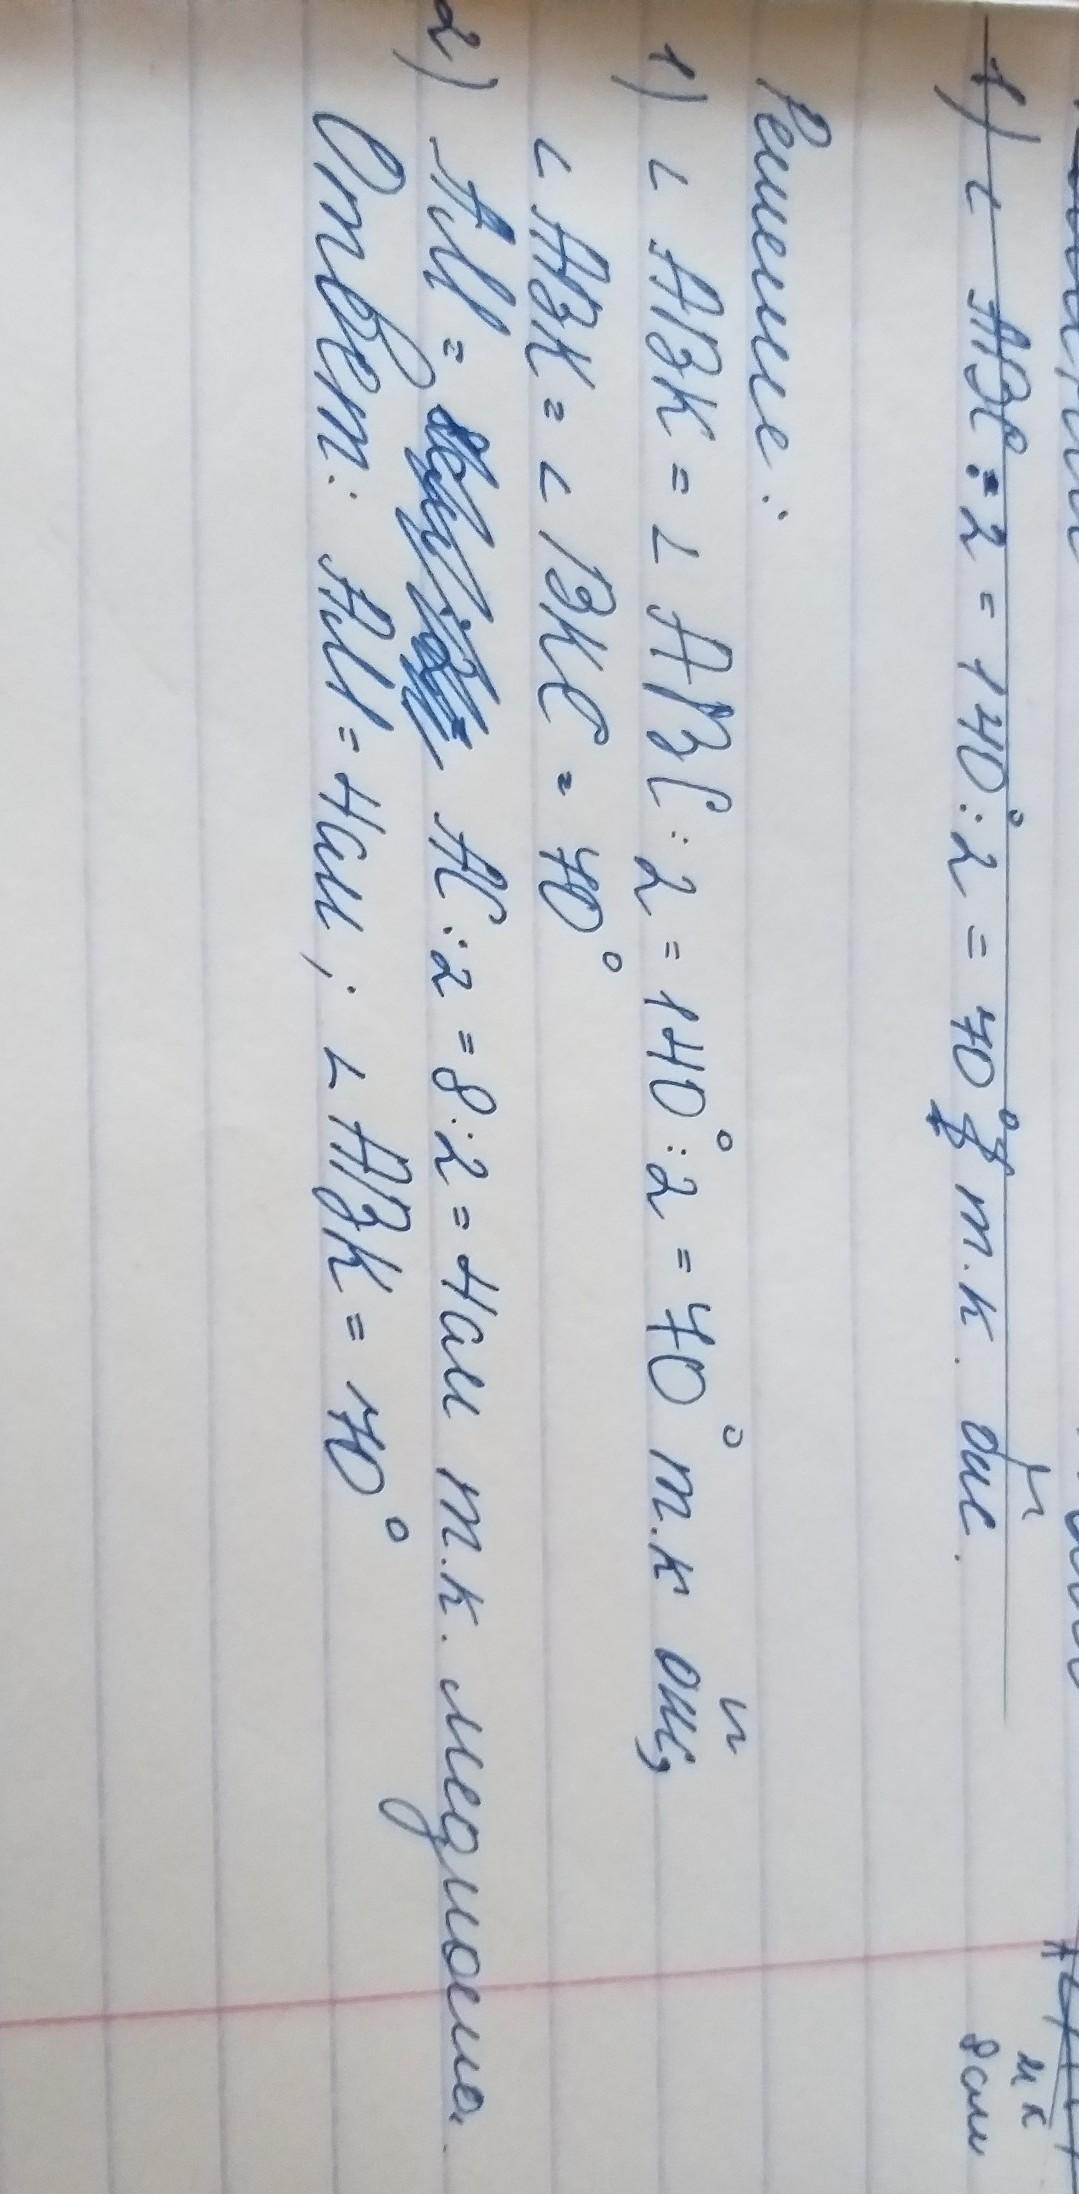 1) ∟ ABC : 2 = 140° : 2 = 70° т.к. бис.
A
м к
8 см
Решение:
1) ∟ ABK = ∟ ABC : 2 = 140° : 2 = 70° т.к бис,
∟ ABK = ∟ BKC = 70°
2) AM = AC : 2 = 8 : 2 = 4 см т.к. медиана.
Ответ: AM = 4 см ; ∟ ABK = 70°